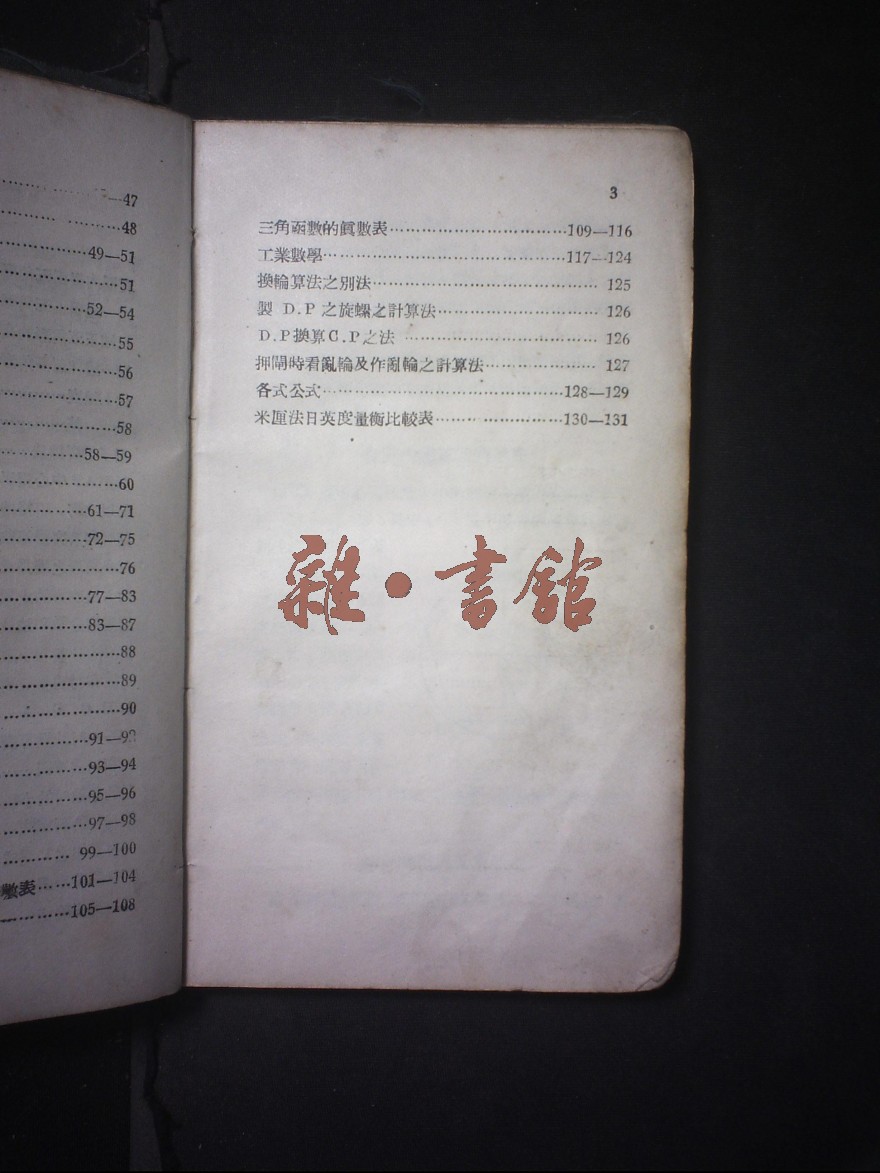 47
48
49—51
51
52—54
55
56
57
58
58—59
60
61—71
72—75
76
77—83
83—87
88
89
90
91—92
93—94
95—96
97—98
99—100
數表……101—104
105—108
3
三角函數的眞數表……………………………109—116
工業數學……………………………………117—124
換輪算法之別法………………………………… 125
製 D.P 之旋螺之計算法……………………… 126
D.P換算C.P之法 …………………………… 126
押閘時看亂輪及作亂輪之計算法……………… 127
各式公式……………………………………128—129
米厘法日英度量衡比較表…………………130—131
雜·書館